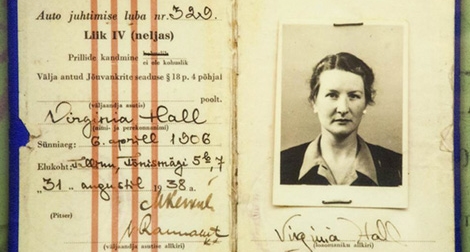 Auto juhtimise luba nr. 329.
Liik IV (neljas)
Prillide kandmine kohuslik
ei ole kohuslik
Välja antud Jõuvankrite seaduse § 18 p. 4 põhjal
poolt.
(väljaandja asutis)
Virginia Hall
(nimi- ja perekonnanimi)
Sünniaeg: 6. aprill 1906
Elukoht: Tallinn, Tõnismägi 5a, 7
"31" augustil 1938 a.
(Pitser)
(väljaandja asutise allkiri)
Virginia Hall
(raamatuomaniku allkiri)